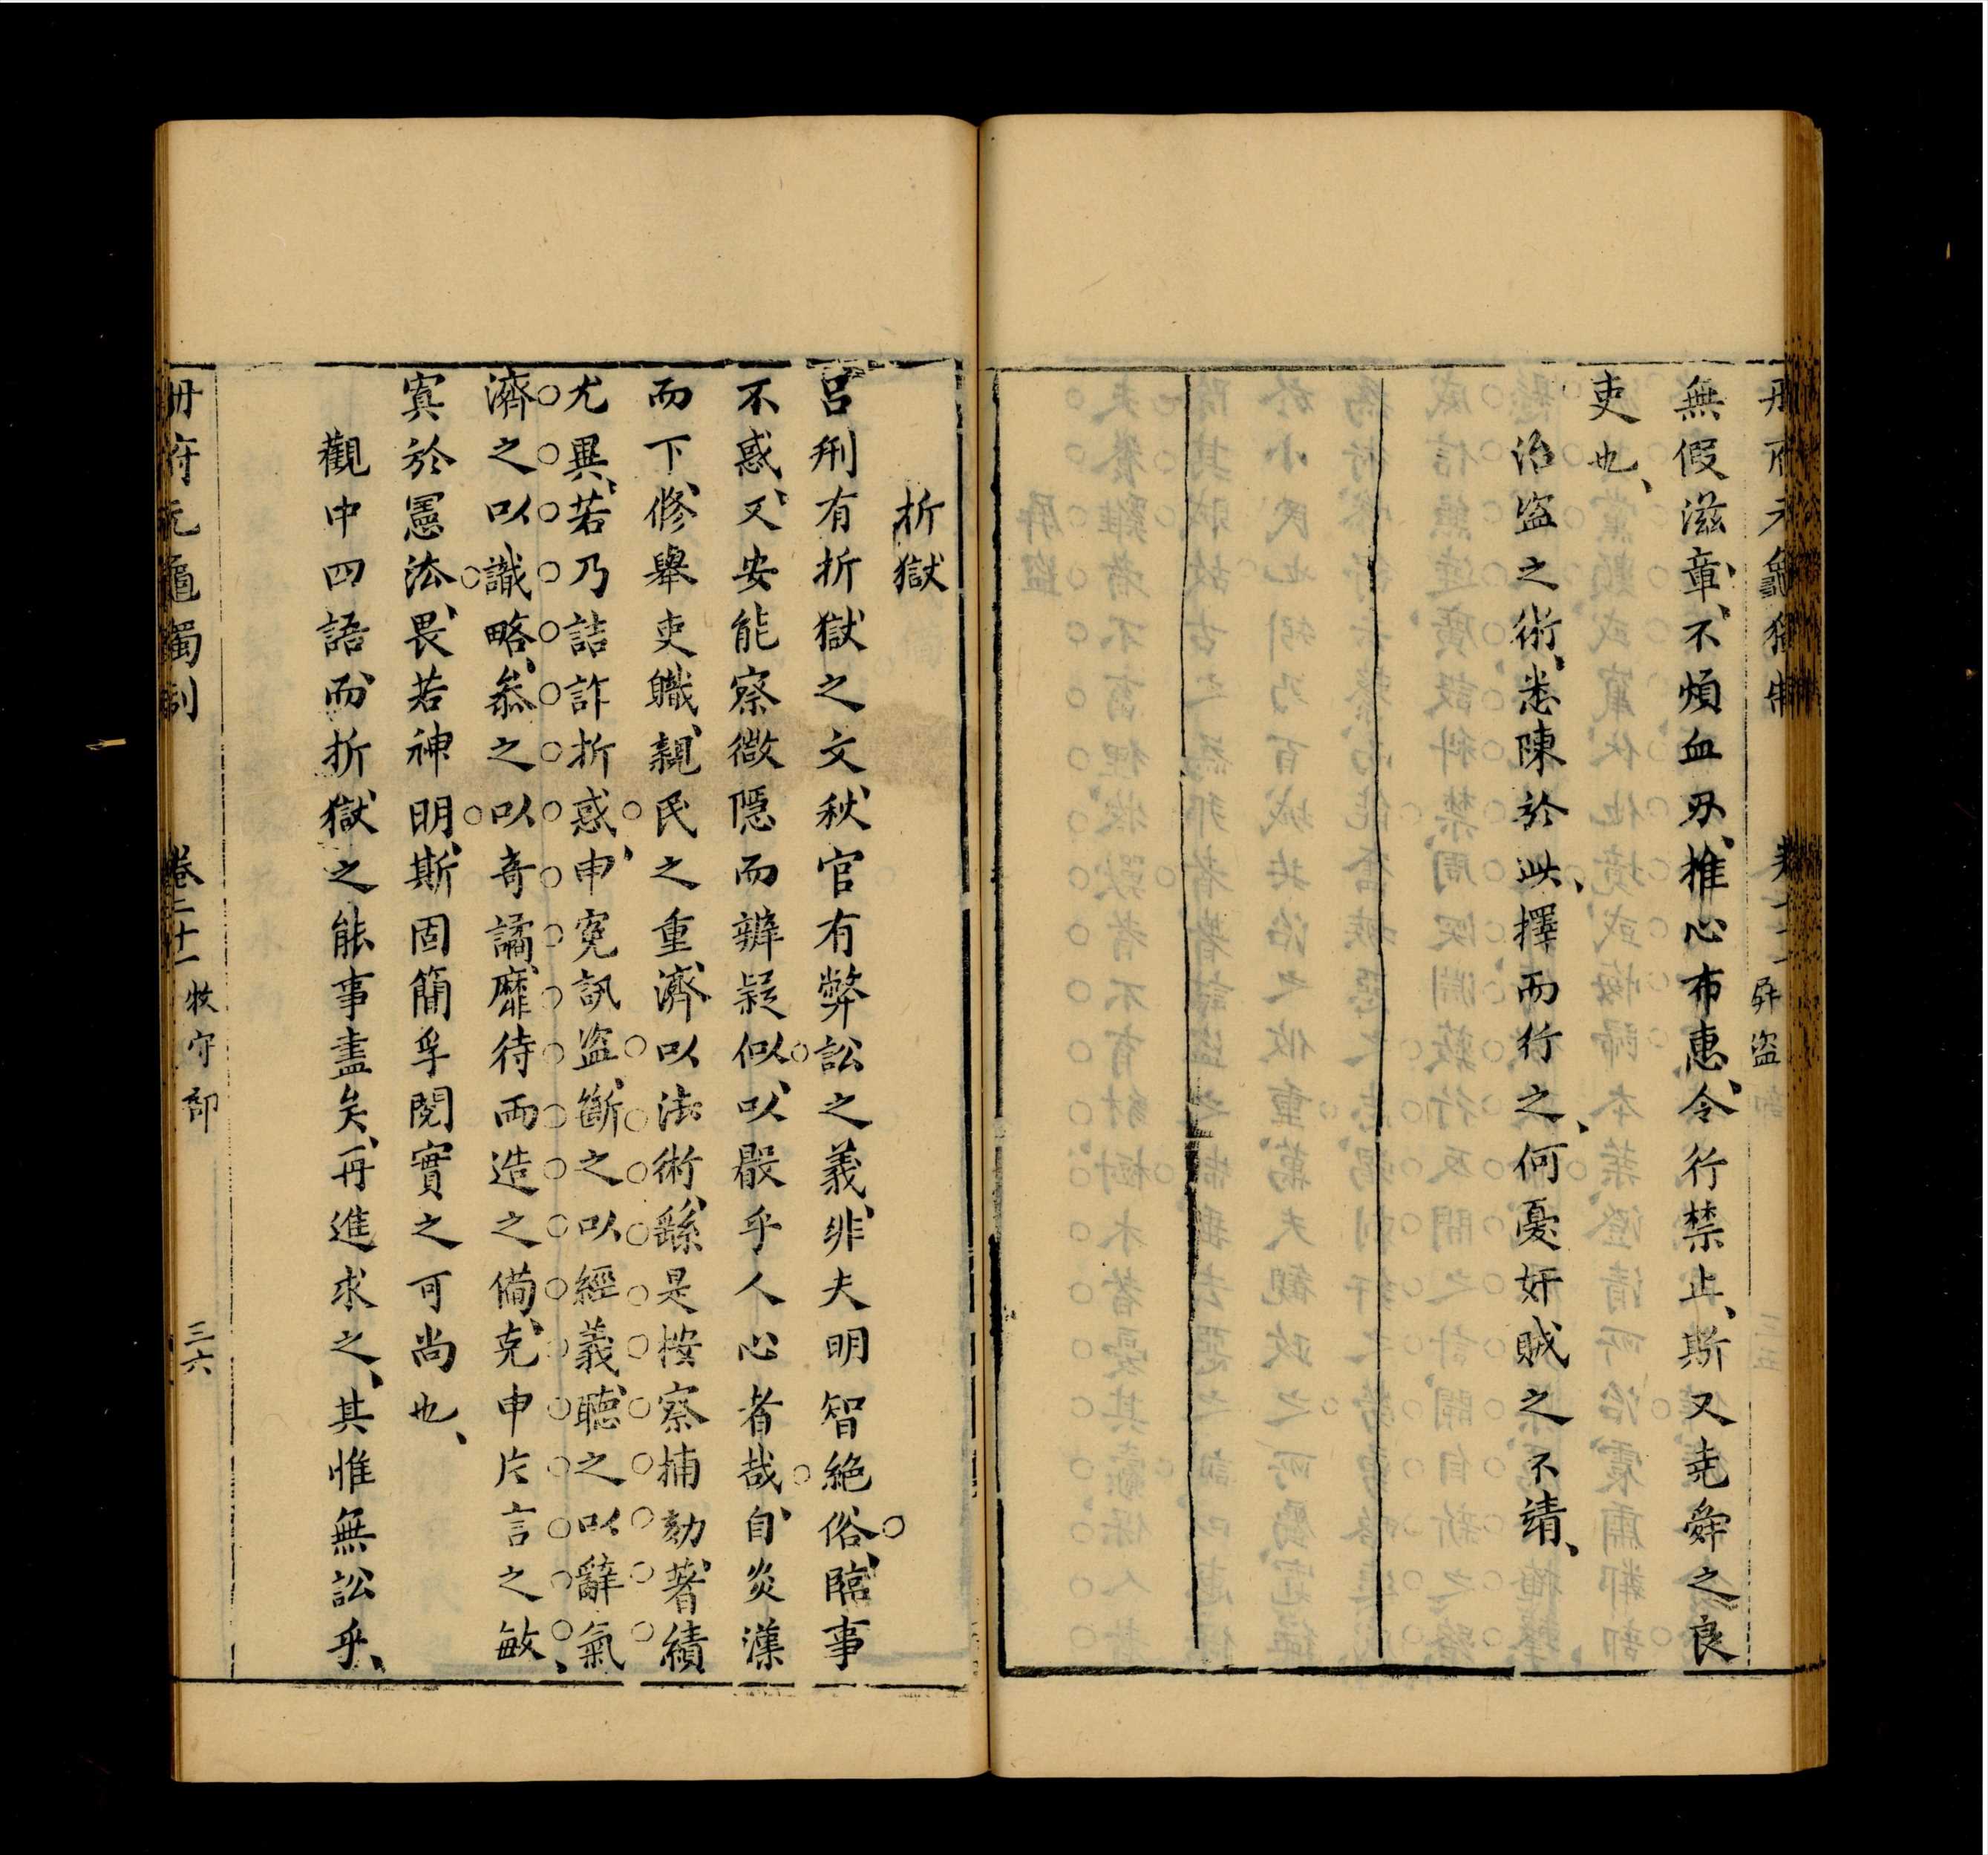 無假滋章、不煩血刃、推心布惠、令行禁止、斯又堯舜之良
吏也、
治盜之術、悉陳於此、擇而行之、何憂奸賊之不靖、
屏盜
折獄
呂刑有折獄之文、秋官有弊訟之義、非夫明智絶俗、臨事
不惑、又安能察微隱而辨疑似、以厭乎人心者哉、自炎漢
而下、修舉吏職、親民之重、濟以法術、繇是按察捕劾、著績
尤異、若乃詰詐折惑、申寃訊盜、斷之以經義、聽之以辭氣
濟之以識略、叅之以奇譎、靡待兩造之僃、克申片言之敏、
寘於憲法、畏若神明、斯固簡孚閱實之可尚也、
觀中四語、而折獄之能事盡矣、再進求之、其惟無訟乎、
冊府元龜獨制 卷二十一 牧守部 三六